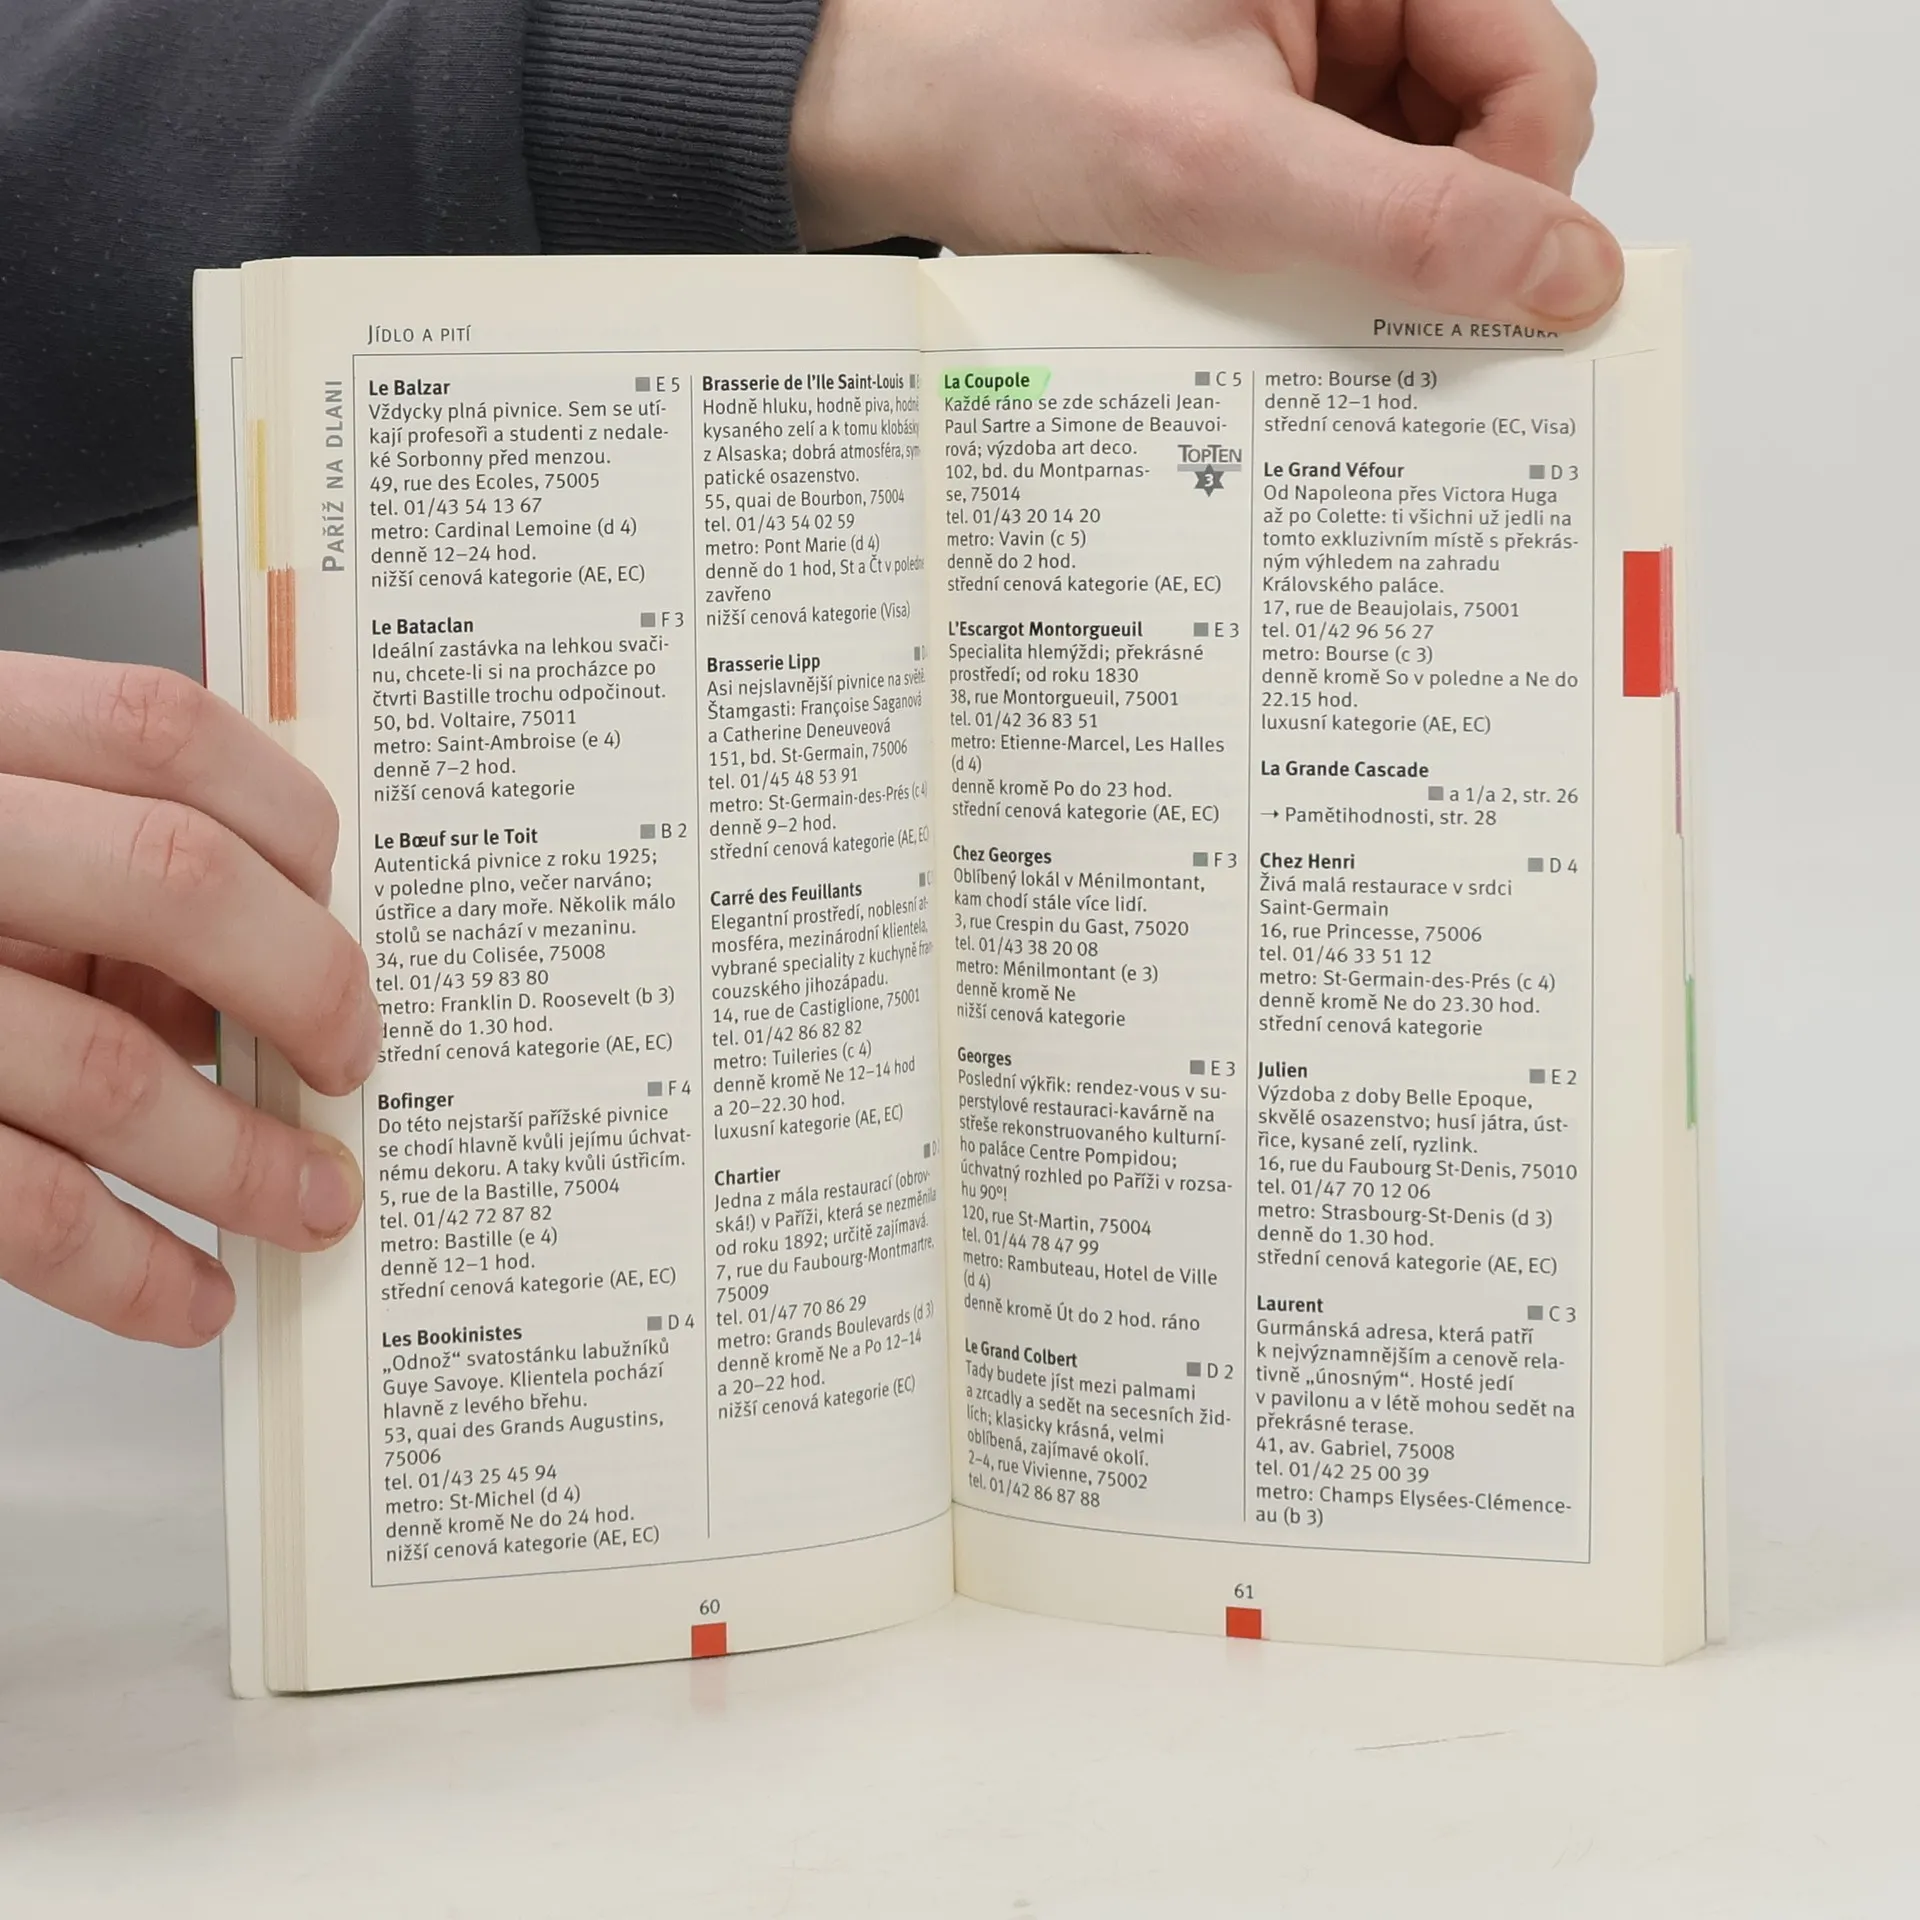 JÍDLO A PITÍ
PAŘÍŽ NA DLANI
Le Balzar E 5
Vždycky plná pivnice. Sem se utí-
kají profesoři a studenti z nedale-
ké Sorbonny před menzou.
49, rue des Ecoles, 75005
tel. 01/43 54 13 67
metro: Cardinal Lemoine (d 4)
denně 12–24 hod.
nižší cenová kategorie (AE, EC)
Le Bataclan F 3
Ideální zastávka na lehkou svači-
nu, chcete-li si na procházce po
čtvrti Bastille trochu odpočinout.
50, bd. Voltaire, 75011
metro: Saint-Ambroise (e 4)
denně 7–2 hod.
nižší cenová kategorie
Le Bœuf sur le Toit B 2
Autentická pivnice z roku 1925;
v poledne plno, večer narváno;
ústřice a dary moře. Několik málo
stolů se nachází v mezaninu.
34, rue du Colisée, 75008
tel. 01/43 59 83 80
metro: Franklin D. Roosevelt (b 3)
denně do 1.30 hod.
střední cenová kategorie (AE, EC)
Bofinger F 4
Do této nejstarší pařížské pivnice
se chodí hlavně kvůli jejímu úchvat-
nému dekoru. A taky kvůli ústřicím.
5, rue de la Bastille, 75004
tel. 01/42 72 87 82
metro: Bastille (e 4)
denně 12–1 hod.
střední cenová kategorie (AE, EC)
Les Bookinistes D 4
„Odnož“ svatostánku labužníků
Guye Savoye. Klientela pochází
hlavně z levého břehu.
53, quai des Grands Augustins,
75006
tel. 01/43 25 45 94
metro: St-Michel (d 4)
denně kromě Ne do 24 hod.
nižší cenová kategorie (AE, EC)
Brasserie de l'Ile Saint-Louis
Hodně hluku, hodně piva, hodně
kysaného zelí a k tomu klobásky
z Alsaska; dobrá atmosféra, sym-
patické osazenstvo.
55, quai de Bourbon, 75004
tel. 01/43 54 02 59
metro: Pont Marie (d 4)
denně do 1 hod, St a Čt v poledne
zavřeno
nižší cenová kategorie (Visa)
Brasserie Lipp
Asi nejslavnější pivnice na světě.
Štamgasti: Françoise Saganová
a Catherine Deneuveová
151, bd. St-Germain, 75006
tel. 01/45 48 53 91
metro: St-Germain-des-Prés (c 4)
denně 9–2 hod.
střední cenová kategorie (AE, EC)
Carré des Feuillants
Elegantní prostředí, noblesní at-
mosféra, mezinárodní klientela,
vybrané speciality z kuchyně fran-
couzského jihozápadu.
14, rue de Castiglione, 75001
tel. 01/42 86 82 82
metro: Tuileries (c 4)
denně kromě Ne 12–14 hod
a 20–22.30 hod.
luxusní kategorie (AE, EC)
Chartier
Jedna z mála restaurací (obrov-
ská!) v Paříži, která se nezměnila
od roku 1892; určitě zajímavá.
7, rue du Faubourg-Montmartre,
75009
tel. 01/47 70 86 29
metro: Grands Boulevards (d 3)
denně kromě Ne a Po 12–14
a 20–22 hod.
nižší cenová kategorie (EC)
60
PIVNICE A
La Coupole C 5
Každé ráno se zde scházeli Jean-
Paul Sartre a Simone de Beauvoi-
rová; výzdoba art deco.
TOPTEN
3
102, bd. du Montparnas-
se, 75014
tel. 01/43 20 14 20
metro: Vavin (c 5)
denně do 2 hod.
střední cenová kategorie (AE, EC)
L'Escargot Montorgueuil E 3
Specialita hlemýždi; překrásné
prostředí; od roku 1830
38, rue Montorgueuil, 75001
tel. 01/42 36 83 51
metro: Etienne-Marcel, Les Halles
(d 4)
denně kromě Po do 23 hod.
střední cenová kategorie (AE, EC)
Chez Georges F 3
Oblíbený lokál v Ménilmontant,
kam chodí stále více lidí.
3, rue Crespin du Gast, 75020
tel. 01/43 38 20 08
metro: Ménilmontant (e 3)
denně kromě Ne
nižší cenová kategorie
Georges E 3
Poslední výkřik: rendez-vous v su-
perstylové restauraci-kavárně na
střeše rekonstruovaného kulturní-
ho paláce Centre Pompidou;
úchvatný rozhled po Paříži v rozsa-
hu 90°!
120, rue St-Martin, 75004
tel. 01/44 78 47 99
metro: Rambuteau, Hotel de Ville
(d 4)
denně kromě Út do 2 hod. ráno
Le Grand Colbert D 2
Tady budete jíst mezi palmami
a zrcadly a sedět na secesních žid-
lích; klasicky krásná, velmi
oblíbená, zajímavé okolí.
2–4, rue Vivienne, 75002
tel. 01/42 86 87 88
metro: Bourse (d 3)
denně 12–1 hod.
střední cenová kategorie (EC, Visa)
Le Grand Véfour D 3
Od Napoleona přes Victora Huga
až po Colette: ti všichni už jedli na
tomto exkluzivním místě s překrás-
ným výhledem na zahradu
Královského paláce.
17, rue de Beaujolais, 75001
tel. 01/42 96 56 27
metro: Bourse (c 3)
denně kromě So v poledne a Ne do
22.15 hod.
luxusní kategorie (AE, EC)
La Grande Cascade
a 1/a 2, str. 26
→ Pamětihodnosti, str. 28
Chez Henri D 4
Živá malá restaurace v srdci
Saint-Germain
16, rue Princesse, 75006
tel. 01/46 33 51 12
metro: St-Germain-des-Prés (c 4)
denně kromě Ne do 23.30 hod.
střední cenová kategorie
Julien E 2
Výzdoba z doby Belle Epoque,
skvělé osazenstvo; husí játra, úst-
řice, kysané zelí, ryzlink.
16, rue du Faubourg St-Denis, 75010
tel. 01/47 70 12 06
metro: Strasbourg-St-Denis (d 3)
denně do 1.30 hod.
střední cenová kategorie (AE, EC)
Laurent C 3
Gurmánská adresa, která patří
k nejvýznamnějším a cenově rela-
tivně „únosným“. Hosté jedí
v pavilonu a v létě mohou sedět na
překrásné terase.
41, av. Gabriel, 75008
tel. 01/42 25 00 39
metro: Champs Elysées-Clémence-
au (b 3)
61